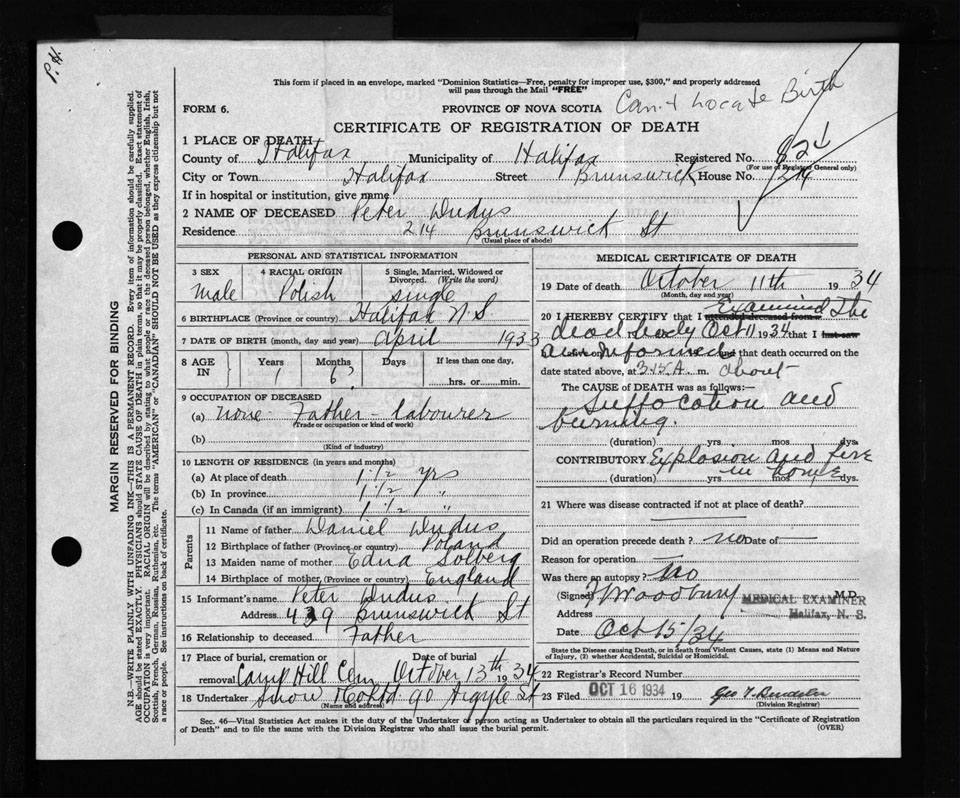 P. H.
This form if placed in an envelope, marked "Dominion Statistics—Free, penalty for improper use, $300," and properly addressed
will pass through the Mail "FREE"
FORM 6.
PROVINCE OF NOVA SCOTIA
Can't Locate Birth
CERTIFICATE OF REGISTRATION OF DEATH
1 PLACE OF DEATH
County of Halifax Municipality of Halifax Registered No. 82
(For use of Registrar General only)
City or Town Halifax Street Brunswick House No. 214
If in hospital or institution, give name
2 NAME OF DECEASED Peter Dudus
Residence 214 Brunswick St
(Usual place of abode)
PERSONAL AND STATISTICAL INFORMATION
3 SEX 4 RACIAL ORIGIN 5 Single, Married, Widowed or
Divorced. (Write the word)
Male Polish single
6 BIRTHPLACE (Province or country) Halifax N.S.
7 DATE OF BIRTH (month, day and year) April 1933
8 AGE IN Years Months Days If less than one day,
1 6
hrs. or min.
9 OCCUPATION OF DECEASED
(a) None - Father - labourer
(Trade or occupation or kind of work)
(b)
(Kind of industry)
10 LENGTH OF RESIDENCE (in years and months)
(a) At place of death 1 1/2 yrs
(b) In province 1 1/2 "
(c) In Canada (if an immigrant) 1 1/2 "
Parents
11 Name of father Daniel Dudus
12 Birthplace of father (Province or country) Poland
13 Maiden name of mother Edna Solberg
14 Birthplace of mother (Province or country) England
15 Informant's name Peter Dudus
Address 439 Brunswick St
16 Relationship to deceased Father
17 Place of burial, cremation or Date of burial
removal Camp Hill Cem October 13th 1934
18 Undertaker Snow & Co Ltd 90 Argyle St
(Name and address)
MEDICAL CERTIFICATE OF DEATH
19 Date of death October 11th 1934
(Month, day and year)
Examined the
20 I HEREBY CERTIFY that I attended deceased from
dead body Oct 11 1934 that I last saw
am informed and that death occurred on the
date stated above, at 3.15 A. m. about
The CAUSE OF DEATH was as follows:—
Suffocation and
burning.
(duration) yrs. mos. dys.
CONTRIBUTORY Explosion and fire
in home
(duration) yrs. mos. dys.
21 Where was disease contracted if not at place of death?
Did an operation precede death? no Date of
Reason for operation
Was there an autopsy? No
(Signed) Woodbury M.D.
Address MEDICAL EXAMINER
Halifax, N. S.
Date Oct 15/34
State the Disease causing Death, or in death from Violent Causes, state (1) Means and Nature
of Injury, (2) whether Accidental, Suicidal or Homicidal.
22 Registrar's Record Number
23 Filed OCT 16 1934 19 Geo
(Division Registrar)
Sec. 46—Vital Statistics Act makes it the duty of the Undertaker or person acting as Undertaker to obtain all the particulars required in the "Certificate of Registration
of Death" and to file the same with the Division Registrar who shall issue the burial permit.
(OVER)
MARGIN RESERVED FOR BINDING
N.B.—WRITE PLAINLY WITH UNFADING INK—THIS IS A PERMANENT RECORD. Every item of information should be carefully supplied.
AGE should be stated EXACTLY. PHYSICIANS should STATE CAUSE OF DEATH in plain terms, so that it may be properly classified. Exact statement of
OCCUPATION is very important. RACIAL ORIGIN will be described by stating to what people or race the deceased person belonged, whether English, Irish,
Scottish, French, German, Russian, Ruthenian, etc. The terms "AMERICAN" or "CANADIAN" SHOULD NOT BE USED as they express citizenship but not
a race or people. See instructions on back of certificate.